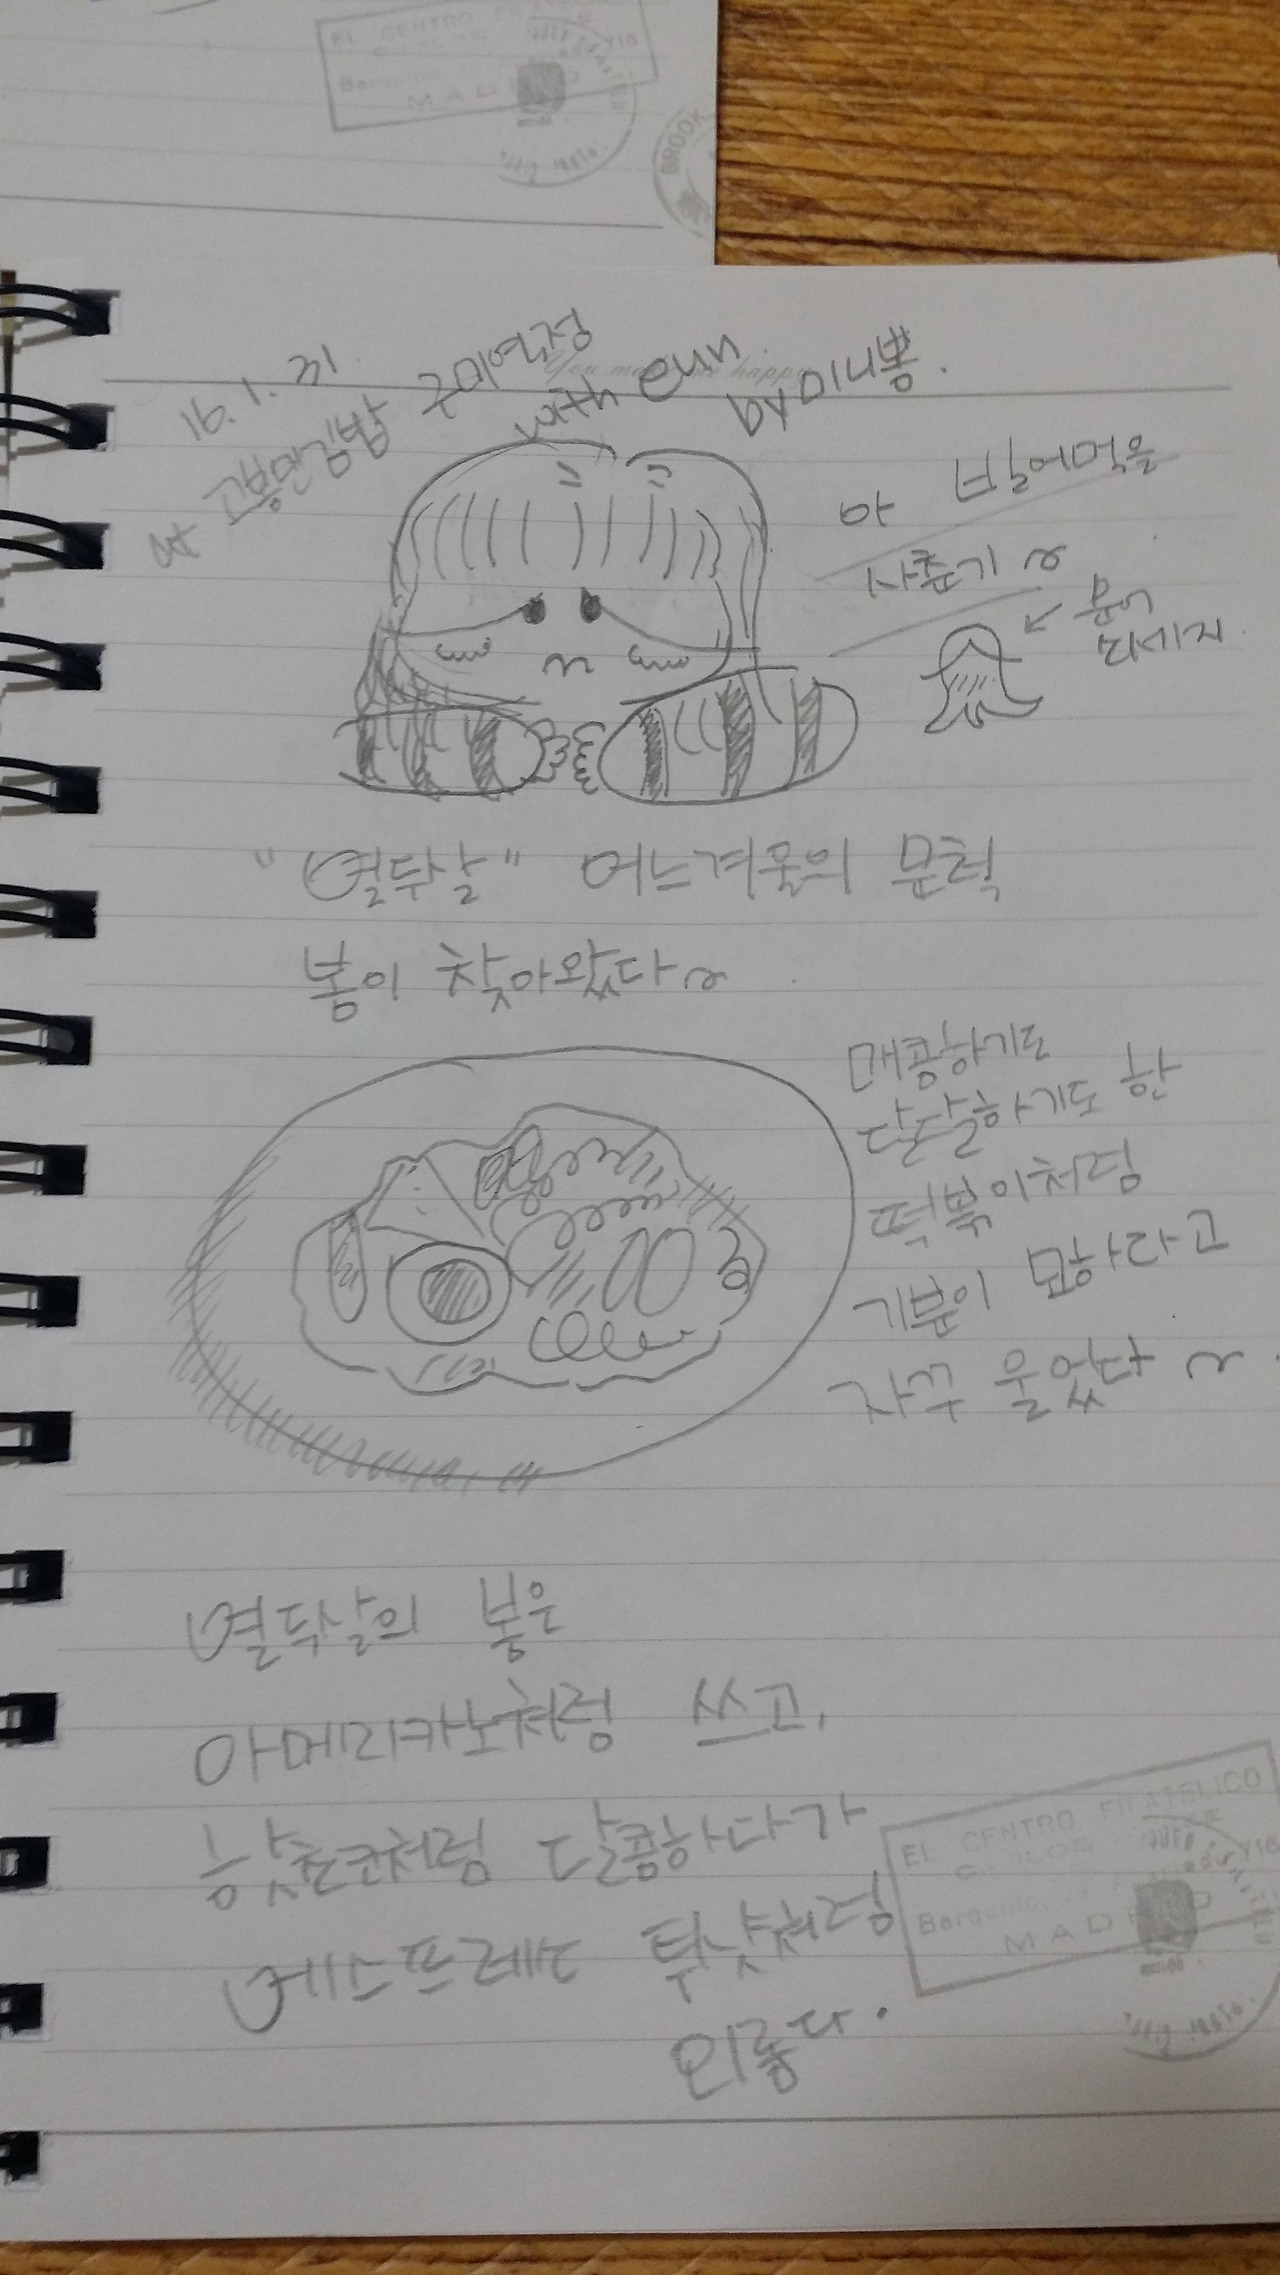 EL CENTRO
MAD
BROOK
16. 1. 31.
at 고봉민김밥 구미역점
with eun
by 미니뽕.
You ma happ
아 빌어먹을
사춘기~
문어
"열두살" 어느겨울의 문턱
봄이 찾아왔다~
매콤하기도
달달하기도 한
떡볶이처럼
기분이 묘하다고
자꾸 울었다~
열두살의 봄은
아메리카노처럼 쓰고,
핫초코처럼 달콤하다가
에스프레소 투샷처럼
외롭다.
EL CENTRO FILATELICO
MAD